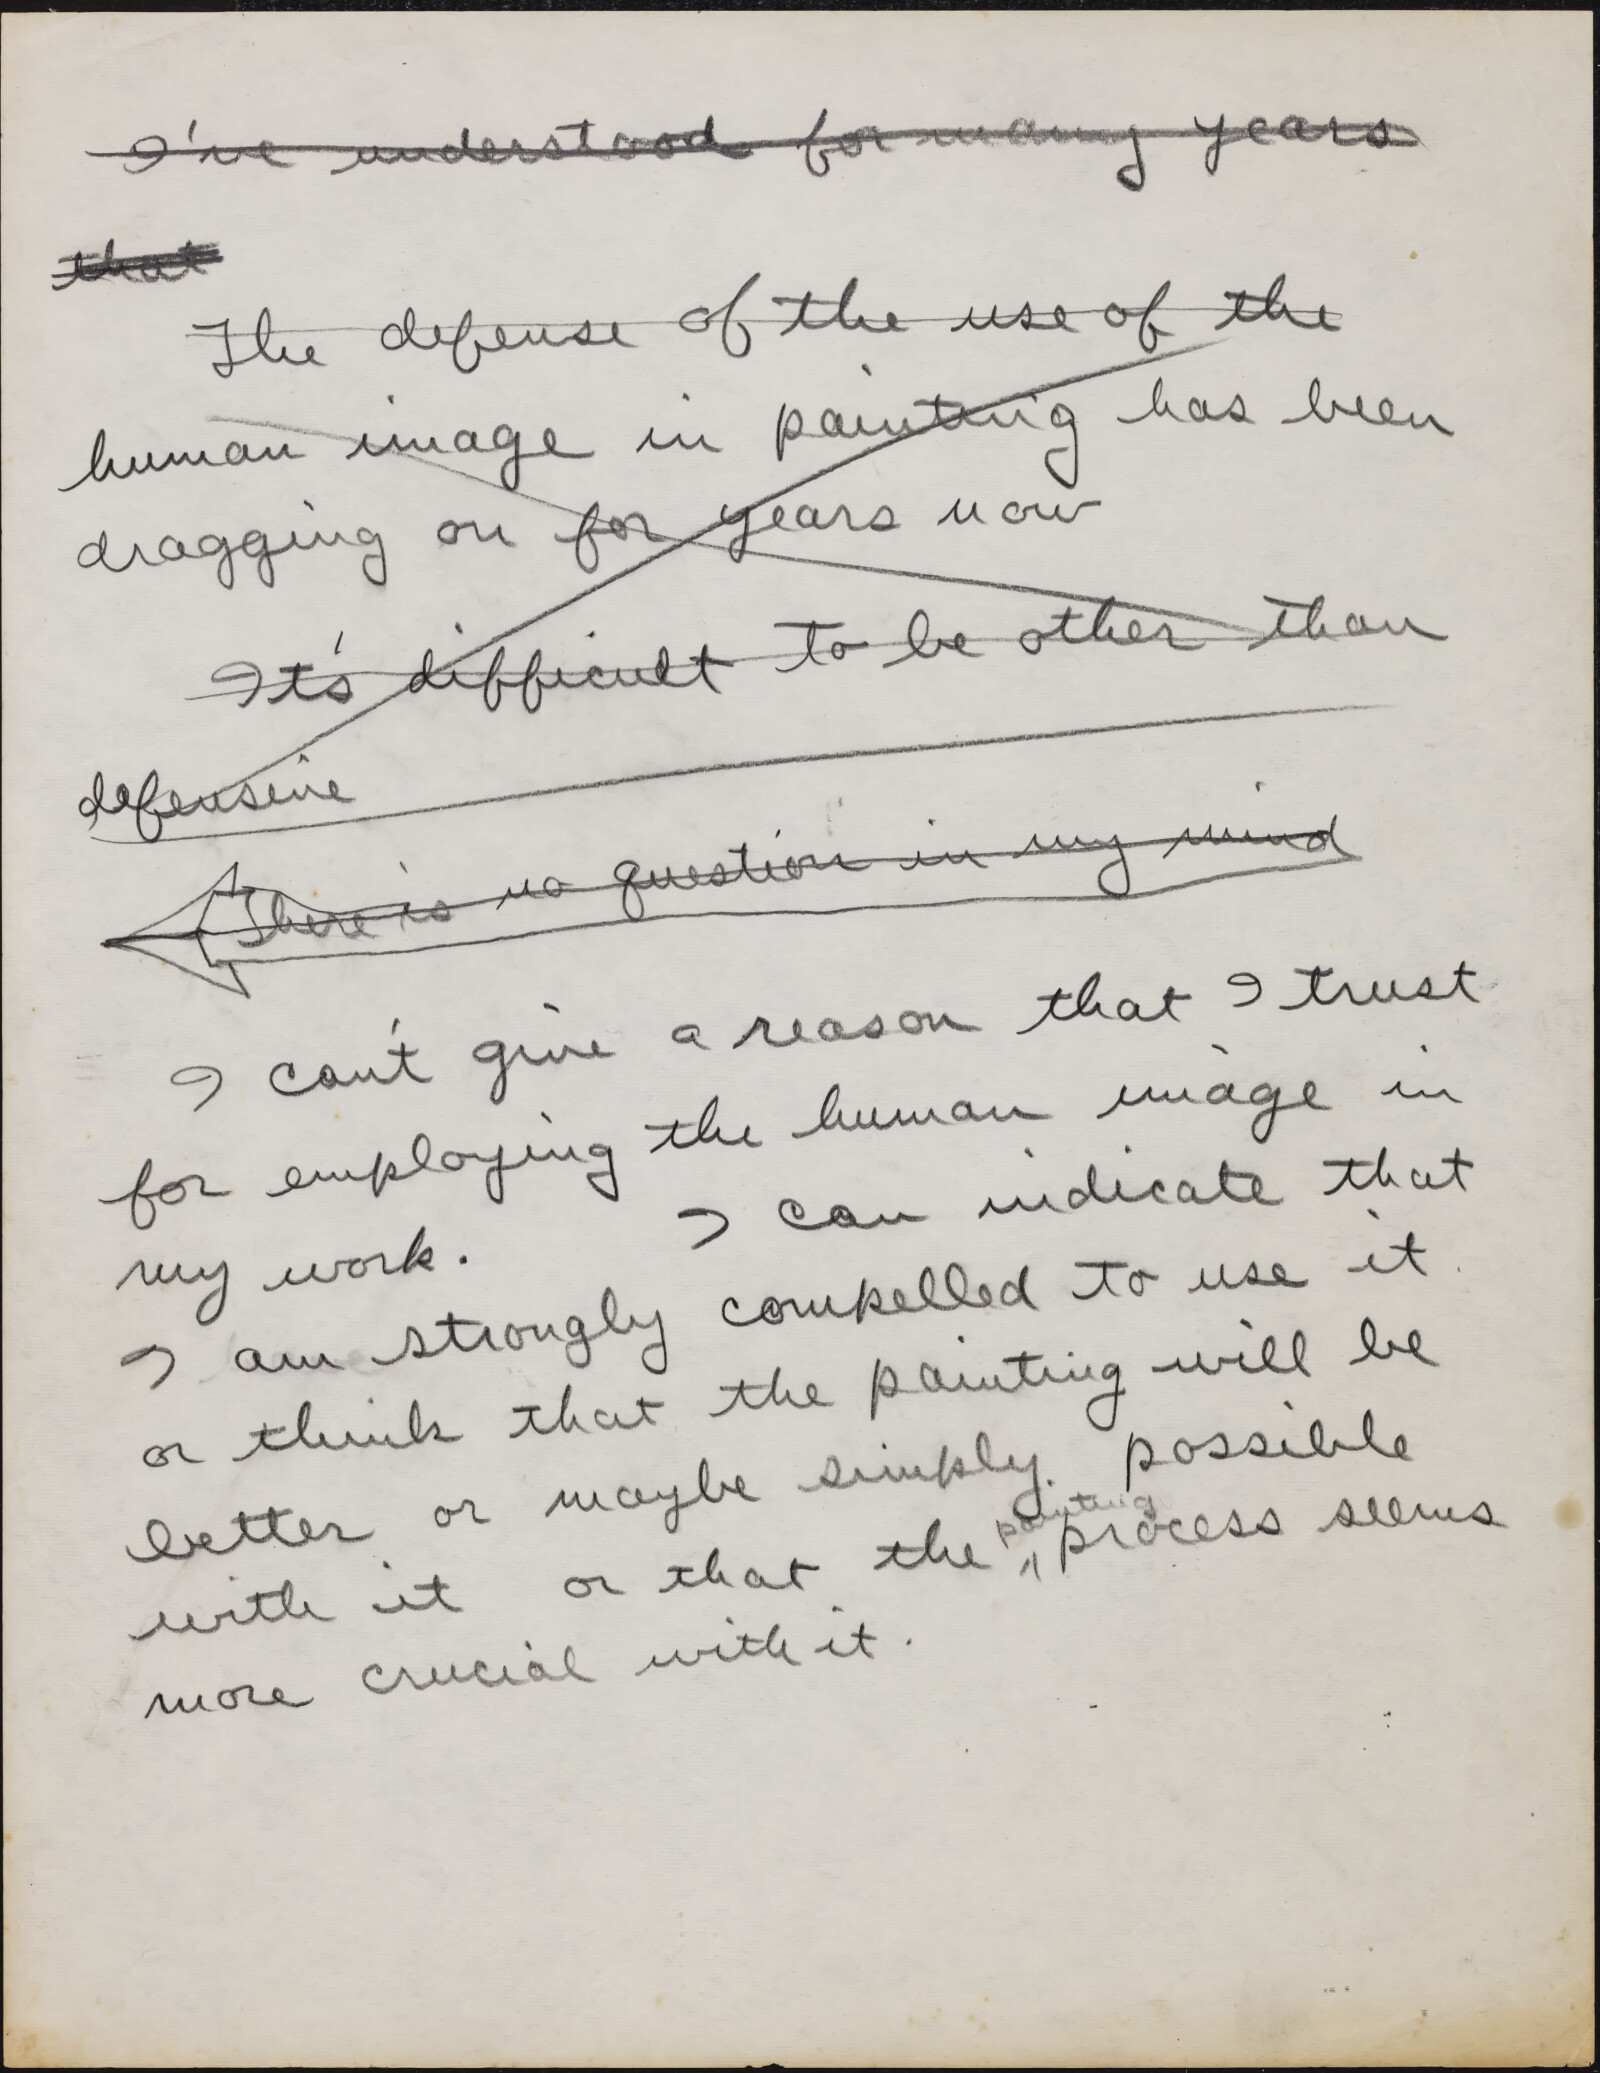 I've understood for many years
that
The defense of the use of the
human image in painting has been
dragging on for years now
It's difficult to be other than
defensive
There is no question in my mind
I can't give a reason that I trust
for employing the human image in
my work. I can indicate that
I am strongly compelled to use it
or think that the painting will be
better or maybe simply possible
with it or that the painting process seems
more crucial with it.